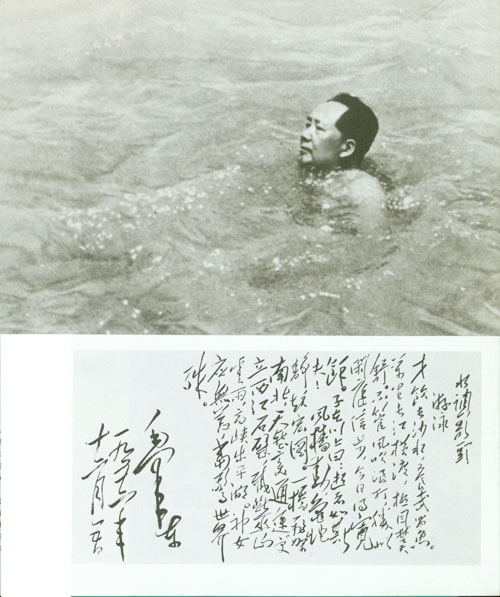 水调歌头
游泳
才飲長沙水,又食武昌魚。
万里長江橫渡,極目楚天
舒。不管风吹浪打,勝似
闲庭信步,今日得寬
餘。子在川上曰:逝者如斯
夫!风檣動,龜蛇
静,起宏图。一橋飛架
南北,天塹变通途。更
立西江石壁,截断巫山
雲雨,高峡出平湖。神女
應無恙,當驚世界
殊。
毛泽东
一九五六年
十二月五日